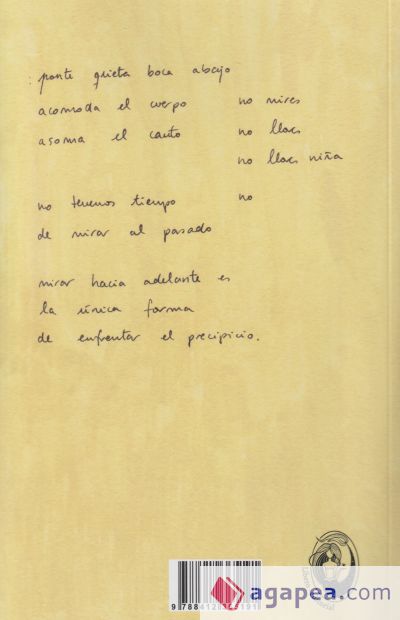 : ponte grieta boca abajo
acomoda el cuerpo no mires
asoma el canto no llores
no llores niña
no tenemos tiempo no
de mirar al pasado
mirar hacia adelante es
la única forma
de enfrentar el precipicio.
agapea.com